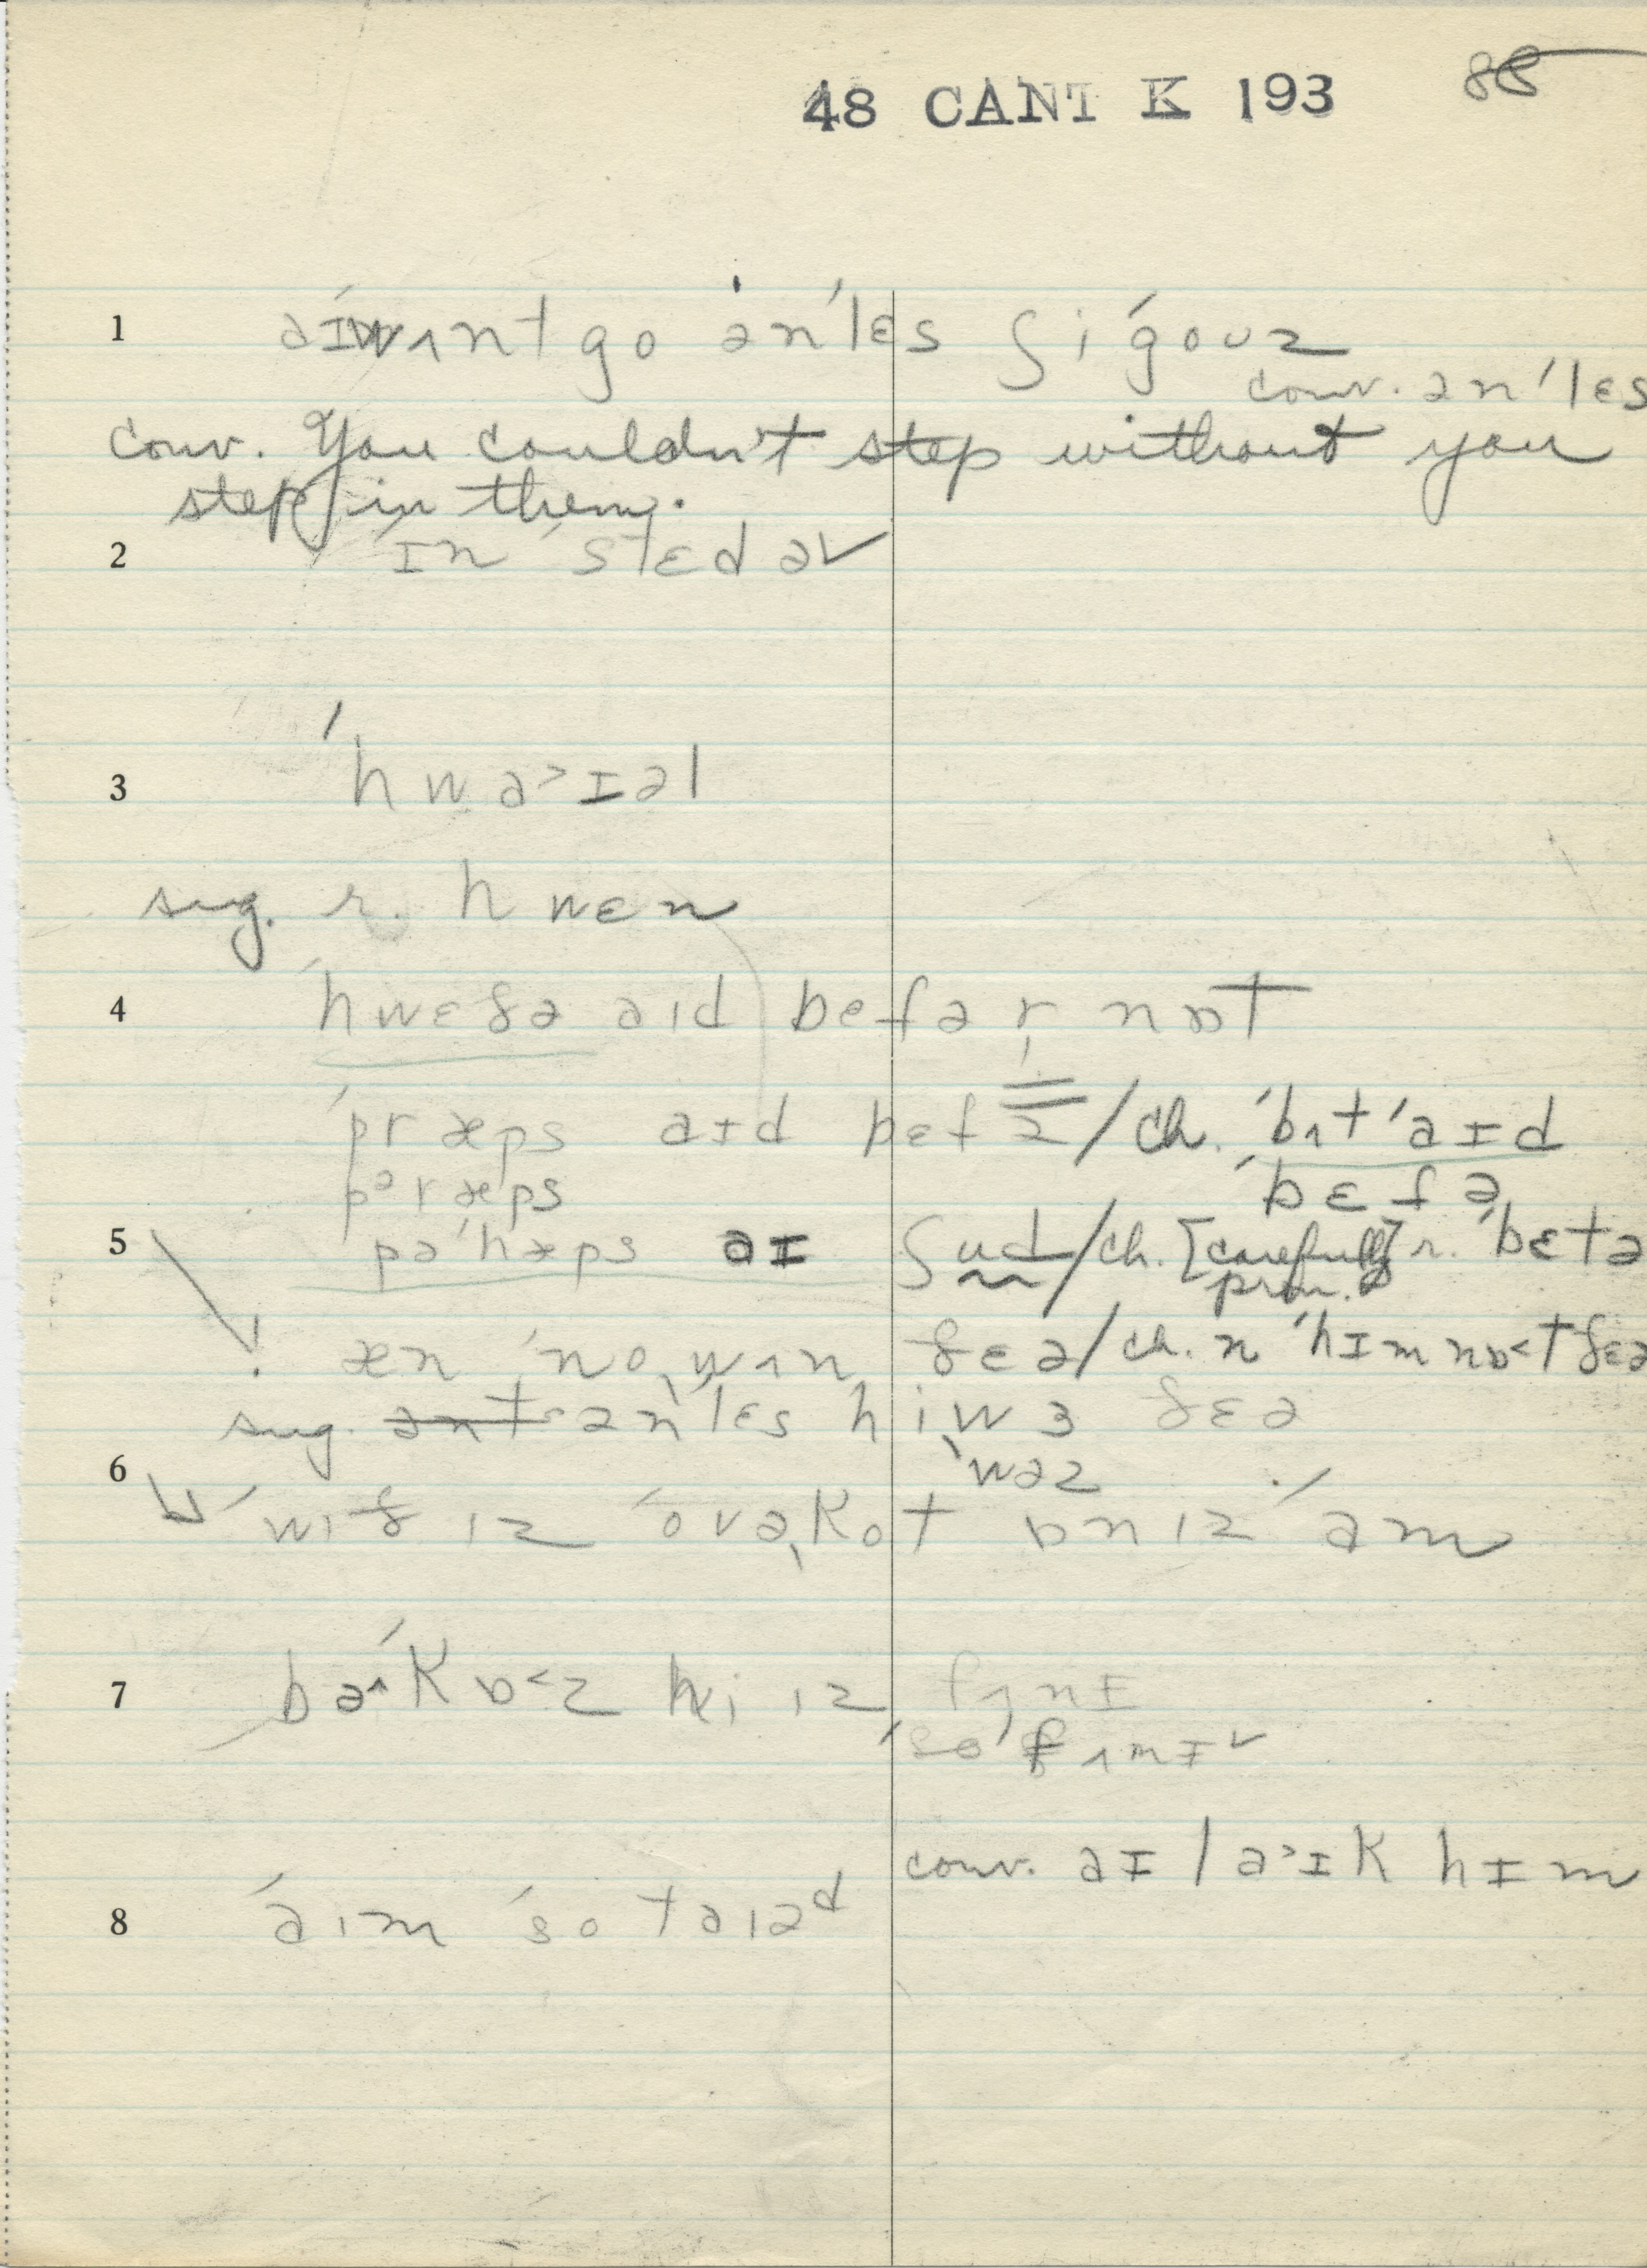 48 CANT K 193 88
1 aɪwʌnt go ən'lɛs ʃi góʊz
conv. ən'lɛs
conv. You couldn't step without you
step in them.
2 ɪn 'stɛd əv
3 'hwa>ɪəl
sug. r. hwɛn
4 'hwɛðə aɪd bɛfə r nɒt
'præps aɪd bɛf /ch. 'bʌt 'aɪd
pəræps 'bɛfə
5 pə'hæps aɪ ʃud/ch. [carefully r. 'bɛtə
pron.]
! æn 'no,wʌn ðɛə/ch. n 'hɪm nɒ<t ðɛə
sug. ən'lɛs hi wɜ ðɛə
6 'wəz
'wɪð ɪz 'ovə,kot ɒn ɪz 'am
7 bə^'kɒ<z hi ɪz fʌnɪ
'so 'fʌnɪ
conv. aɪ la>ɪk hɪm
8 'aɪm 'so taɪəd